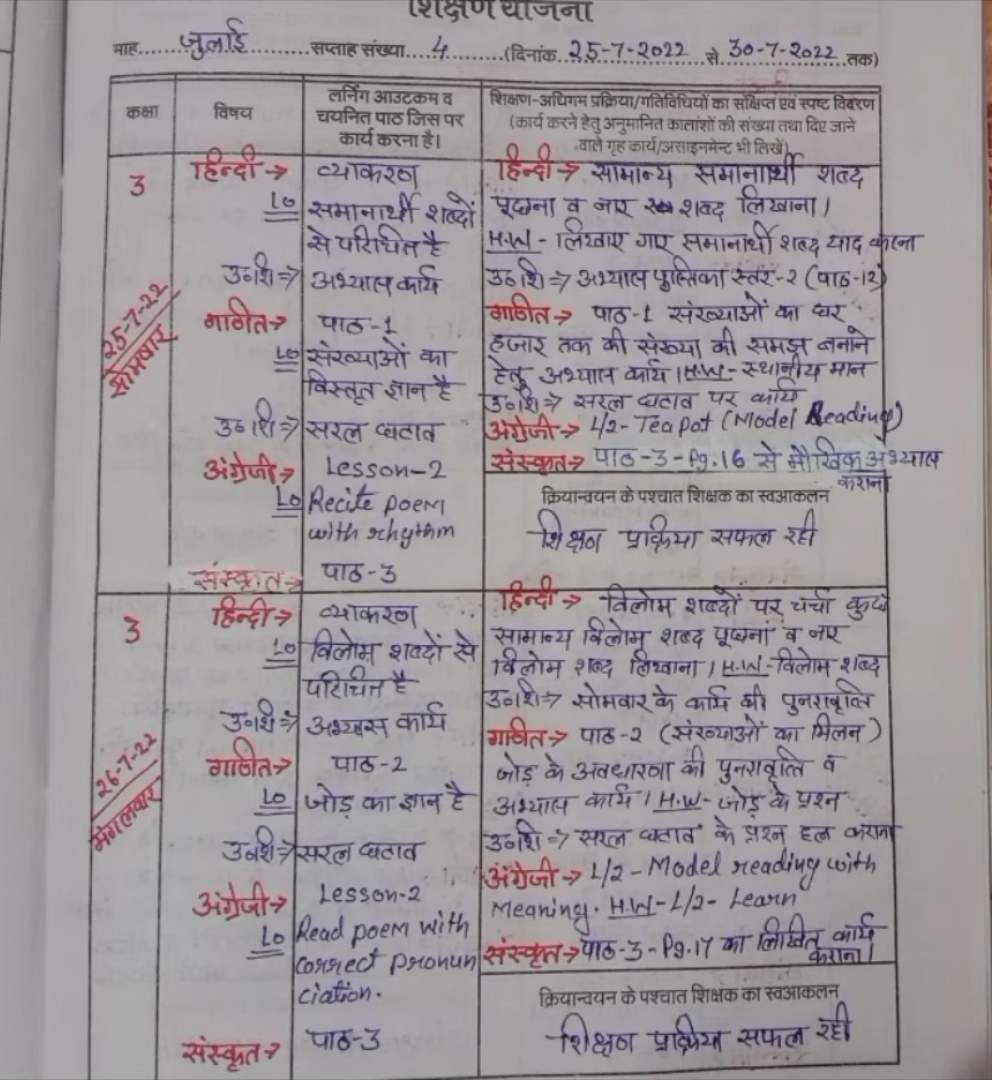 शिक्षण योजना
माह.....जुलाई.....सप्ताह संख्या...4...(दिनांक..25-7-2022..से..30-7-2022..तक)
कक्षा
विषय
लर्निंग आउटकम व
चयनित पाठ जिस पर
कार्य करना है।
शिक्षण-अधिगम प्रक्रिया/गतिविधियों का संक्षिप्त एवं स्पष्ट विवरण
(कार्य करने हेतु अनुमानित कालांशों की संख्या तथा दिए जाने
वाले गृह कार्य/असाइनमेन्ट भी लिखें)
3
25-7-22
सोमवार
हिन्दी → व्याकरण
LO समानार्थी शब्दों
से परिचित है
उ०शि ⇒ अभ्यास कार्य
गणित → पाठ-1
LO संख्याओं का
विस्तृत ज्ञान है
उ०शि ⇒ सरल घटाव
अंग्रेजी → Lesson-2
LO Recite poem
with rhythm
संस्कृत → पाठ-3
हिन्दी → सामान्य समानार्थी शब्द
पूछना व नए शब्द लिखाना।
H.W - लिखाए गए समानार्थी शब्द याद करना
उ०शि ⇒ अभ्यास पुस्तिका स्तर-2 (पाठ-12)
गणित → पाठ-1 संख्याओं का घर
हजार तक की संख्या की समझ बनाने
हेतु अभ्यास कार्य। H.W- स्थानीय मान
उ०शि ⇒ सरल घटाव पर कार्य
अंग्रेजी → L/2- Tea Pot (Model Reading)
संस्कृत → पाठ-3-Pg.16 से मौखिक अभ्यास
कराना
क्रियान्वयन के पश्चात शिक्षक का स्वआकलन
शिक्षण प्रक्रिया सफल रही
3
26-7-22
मंगलवार
हिन्दी → व्याकरण
LO विलोम शब्दों से
परिचित है
उ०शि ⇒ अभ्यास कार्य
गणित → पाठ-2
LO जोड़ का ज्ञान है
उ०शि ⇒ सरल घटाव
अंग्रेजी → Lesson-2
LO Read poem with
correct pronun
ciation.
संस्कृत → पाठ-3
हिन्दी → विलोम शब्दों पर चर्चा कुछ
सामान्य विलोम शब्द पूछना व नए
विलोम शब्द लिखाना। H.W-विलोम शब्द
उ०शि ⇒ सोमवार के कार्य की पुनरावृत्ति
गणित → पाठ-2 (संख्याओं का मिलन)
जोड़ के अवधारणा की पुनरावृत्ति व
अभ्यास कार्य। H.W- जोड़ के प्रश्न
उ०शि ⇒ सरल घटाव के प्रश्न हल कराना
अंग्रेजी → L/2- Model reading with
Meaning. H.W-L/2- Learn
संस्कृत → पाठ-3-Pg.17 का लिखित कार्य
कराना।
क्रियान्वयन के पश्चात शिक्षक का स्वआकलन
शिक्षण प्रक्रिया सफल रही